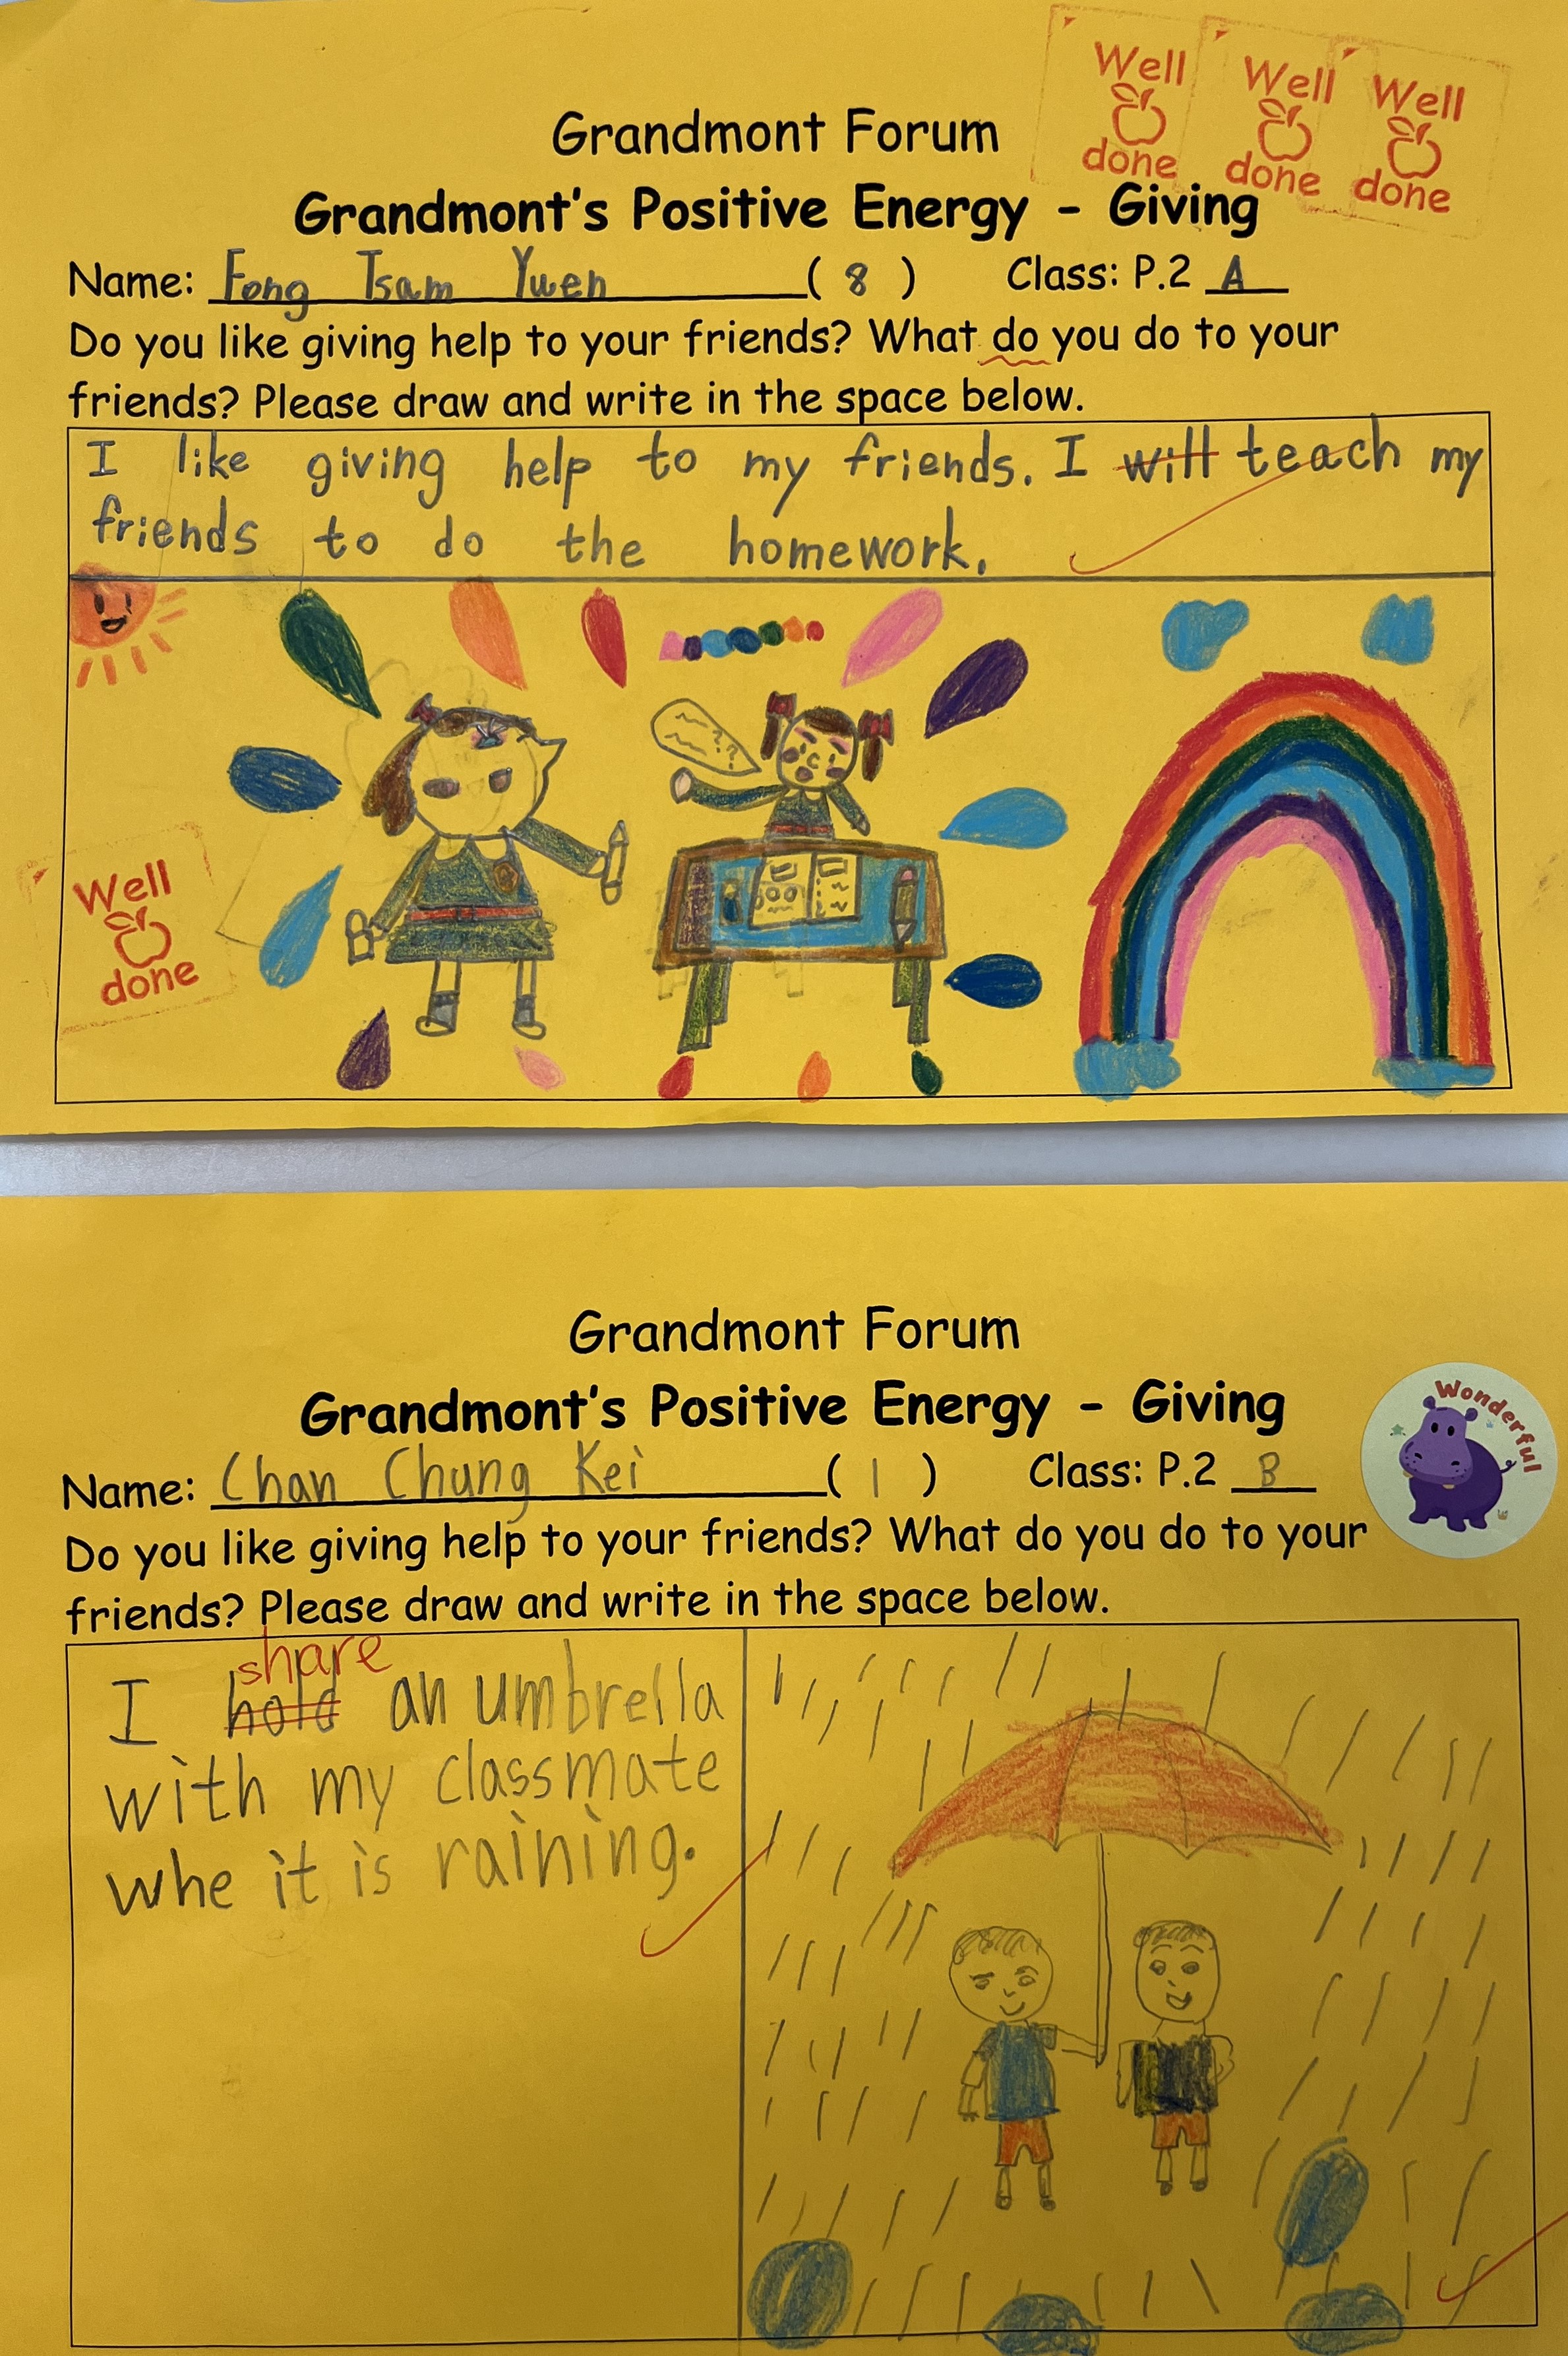 Well done
Well done
Well done
Grandmont Forum
Grandmont's Positive Energy - Giving
Name: Fong Tsam Yuen ( 8 ) Class: P.2 A
Do you like giving help to your friends? What do you do to your
friends? Please draw and write in the space below.
I like giving help to my friends. I will teach my
friends to do the homework.
? ?
?
Well done
Grandmont Forum
Grandmont's Positive Energy - Giving
Wonderful
Name: Chan Chung Kei ( 1 ) Class: P.2 B
Do you like giving help to your friends? What do you do to your
friends? Please draw and write in the space below.
share
I hold an umbrella
with my classmate
whe it is raining.